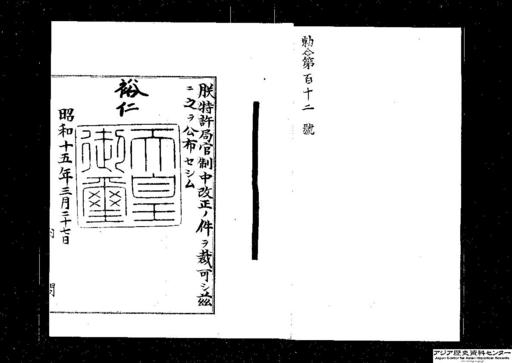 勅令第百十二號
朕特許局官制中改正ノ件ヲ裁可シ茲
ニ之ヲ公布セシム
裕仁
天皇御璽
昭和十五年三月二十七日
内閣
アジア歴史資料センター
Japan Center for Asian Historical Records